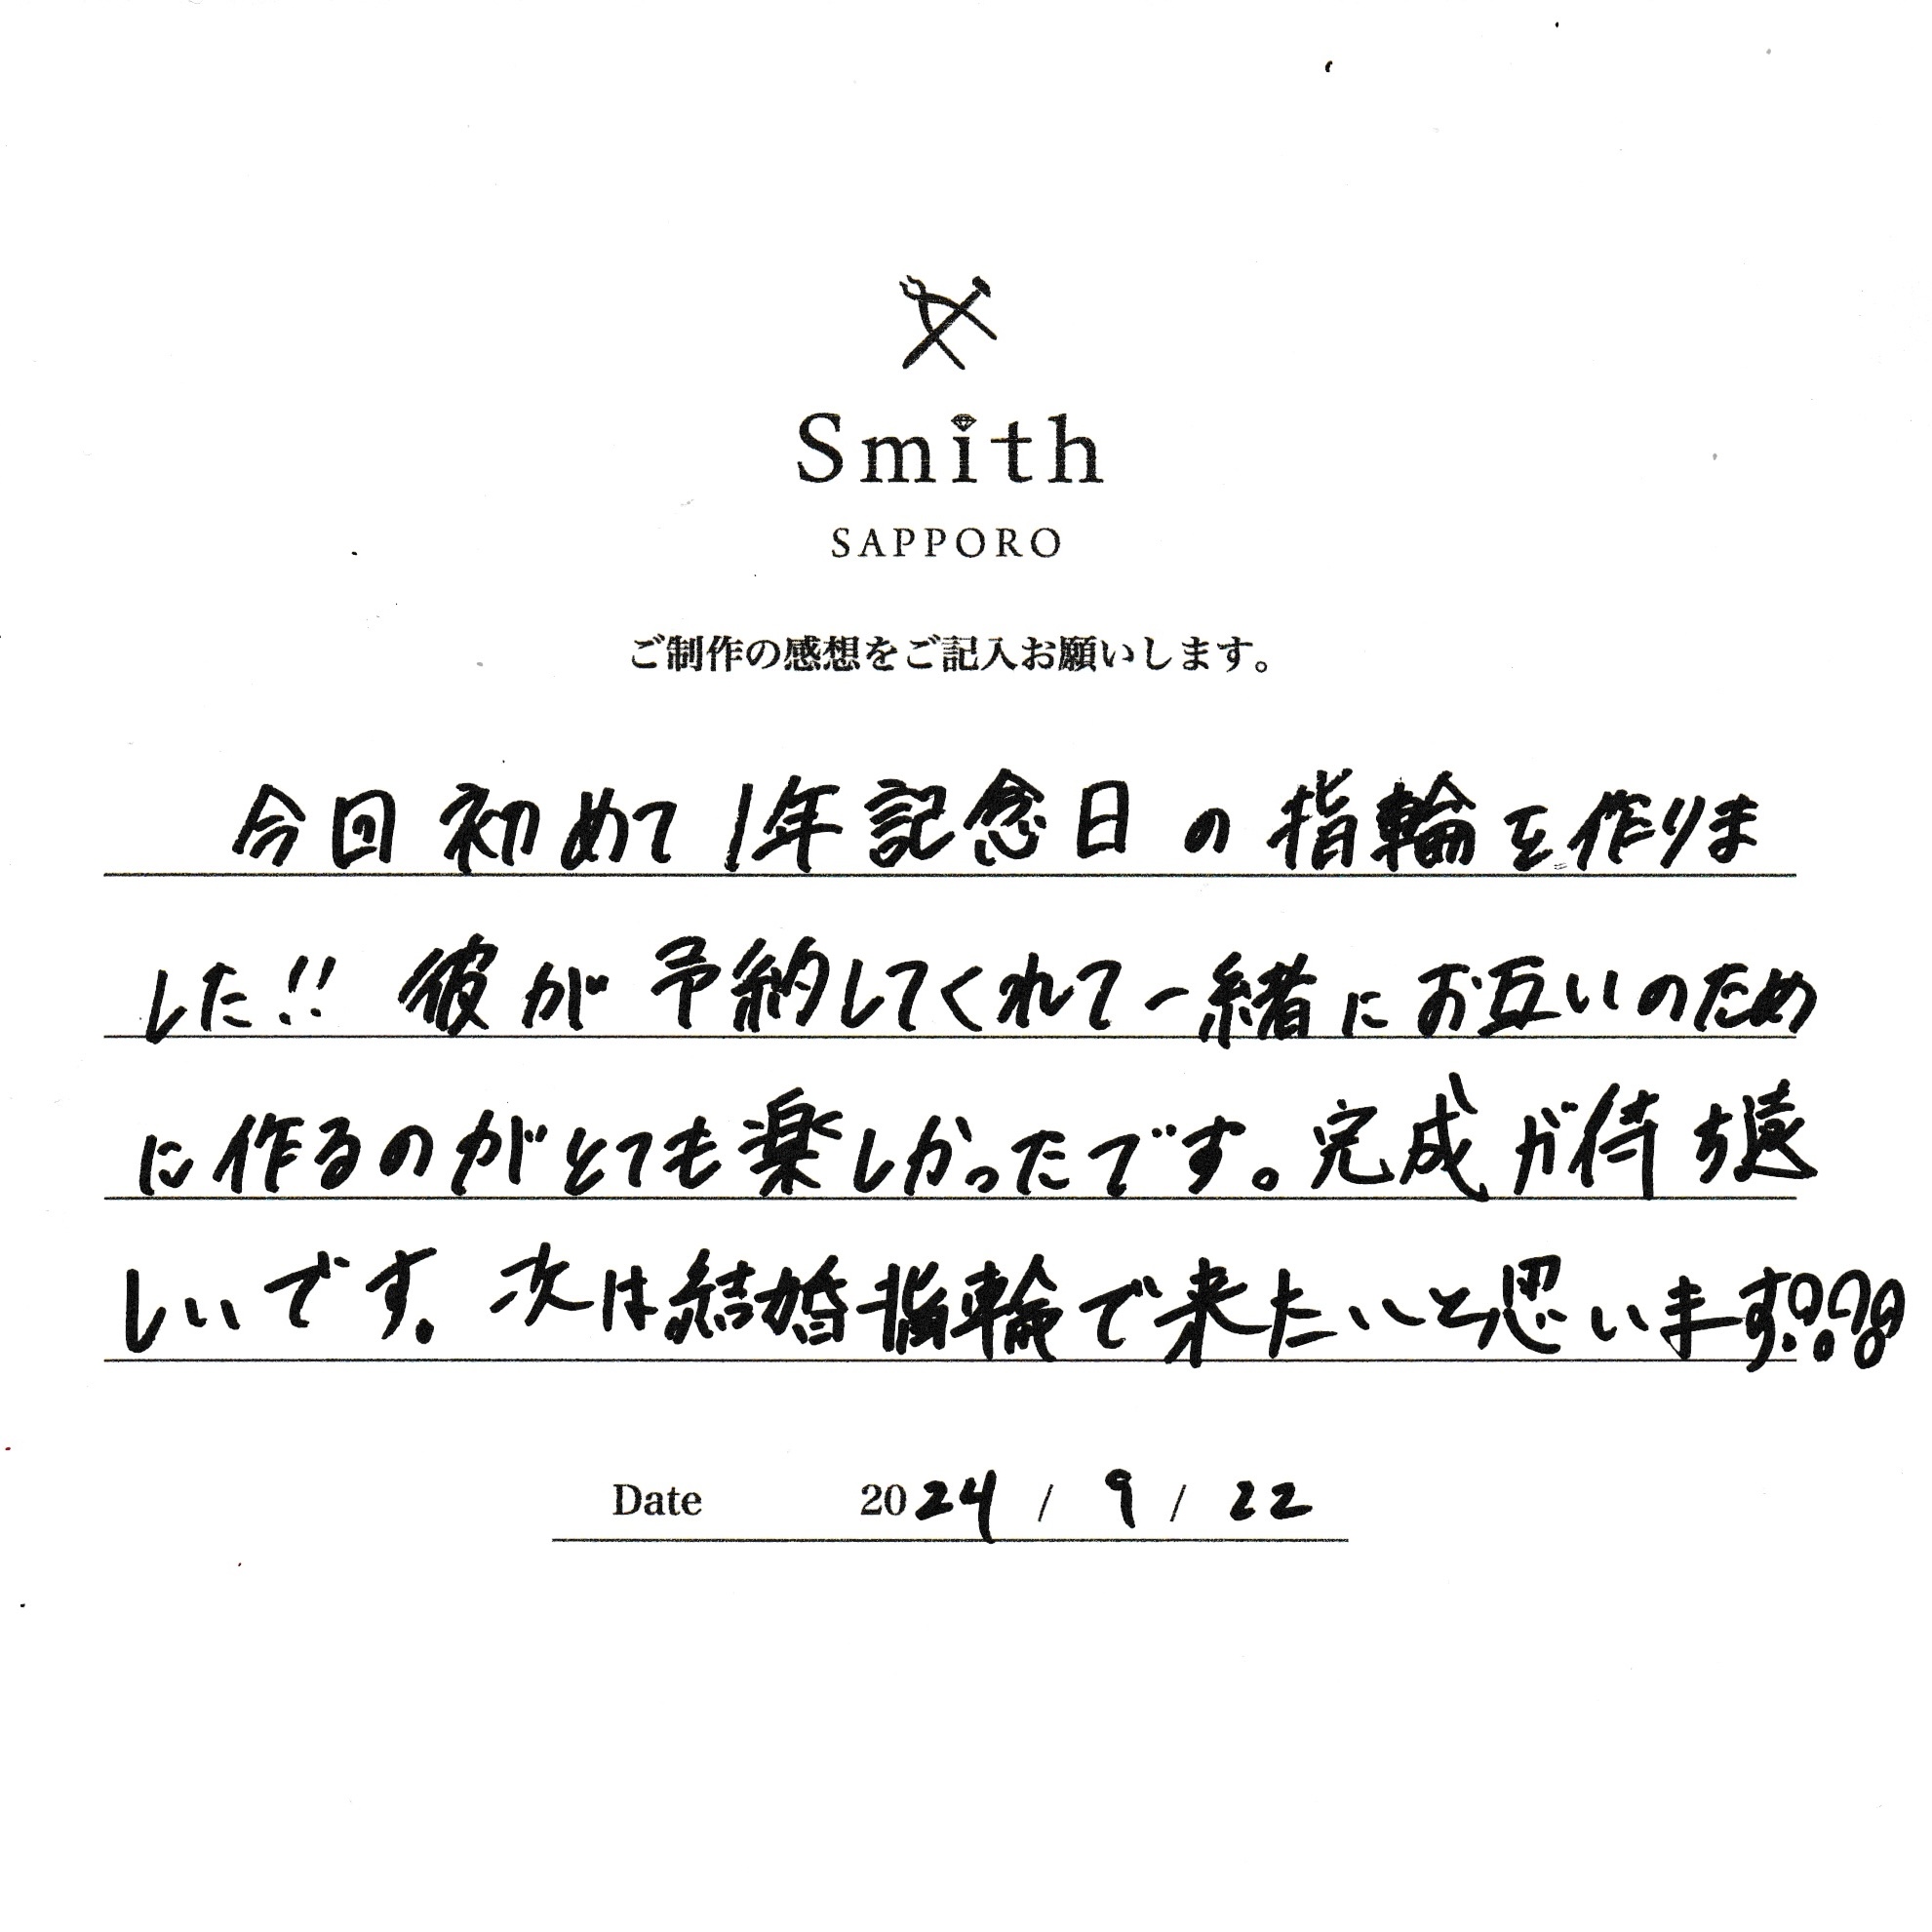 Smith
SAPPORO
ご制作の感想をご記入お願いします。
今回初めて1年記念日の指輪を作りま
した!! 彼が予約してくれて一緒にお互いのため
に作るのがとても楽しかったです。完成が待ち遠
しいです。次は結婚指輪で来たいと思います!!!
Date 2024 / 9 / 22